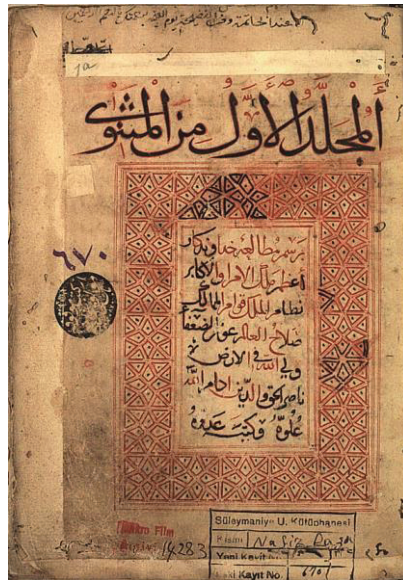 1a
المجلد الاول من المثنوى
٦٧٠
برسم مطالعه خداوندكار
اعظم ملك الامرا والاكابر
نظام الملك قوام الممالك
صلاح العالم عون الضعفا
ولي الله في الارض
ناصر الحق والدين ادام الله
علوه وكبت عدوه
Mikro Film
Arşivi 4283
Süleymaniye U. Kütüphanesi
Kısmı Nafiz Paşa
Yeni Kayıt
Eski Kayıt No. 670